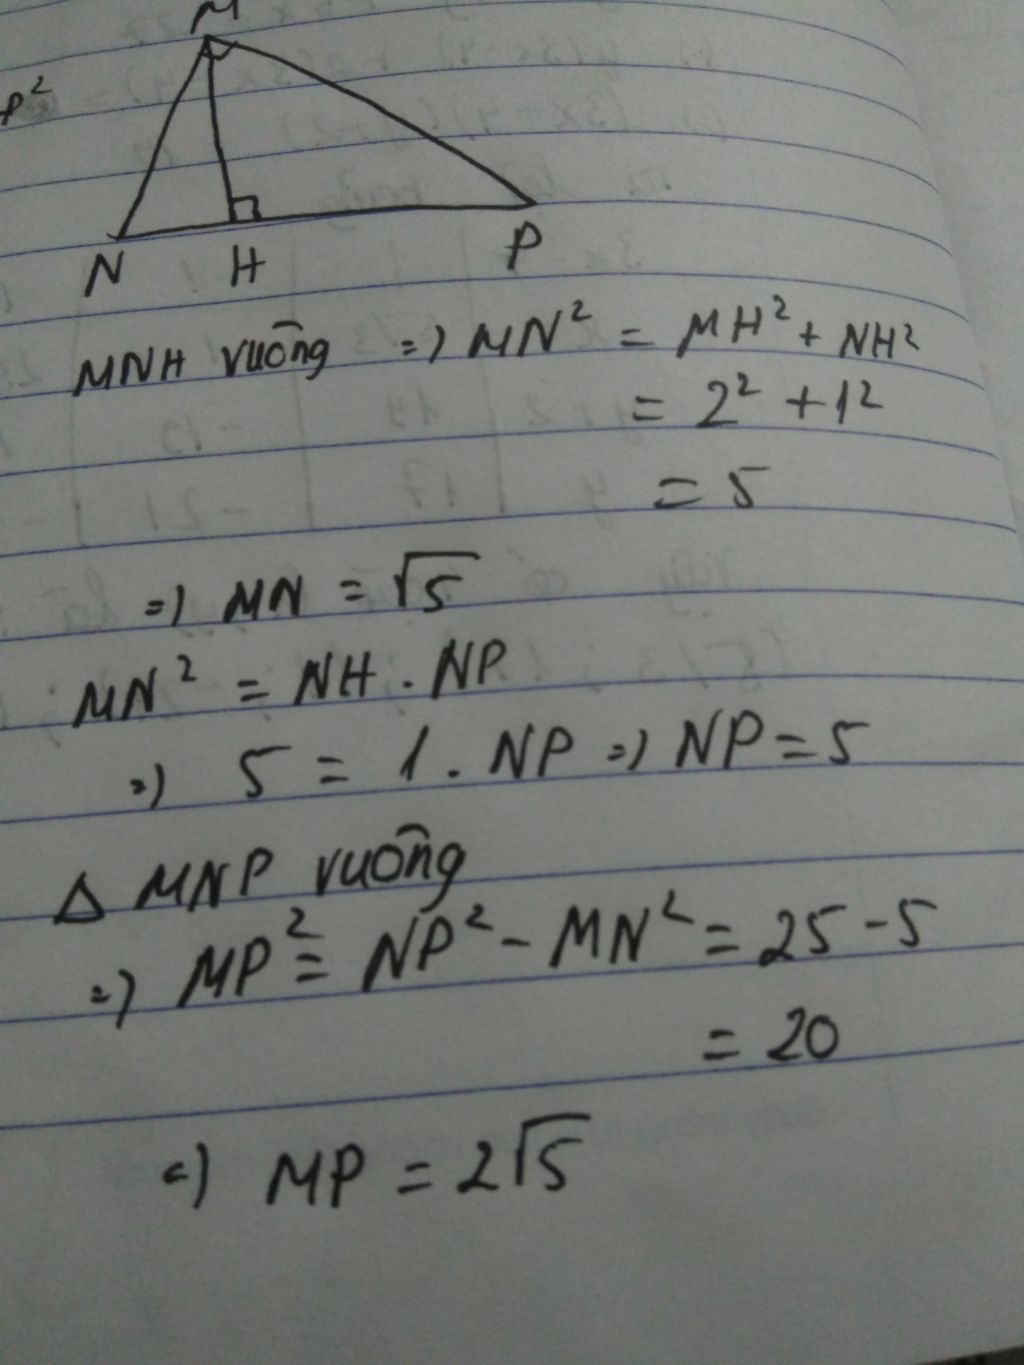 M
P²
N H P
MNH vuông => MN² = MH² + NH²
= 2² + 1²
= 5
=> MN = √5
MN² = NH . NP
=> 5 = 1 . NP => NP = 5
Δ MNP vuông
=> MP² = NP² - MN² = 25 - 5
= 20
=> MP = 2√5